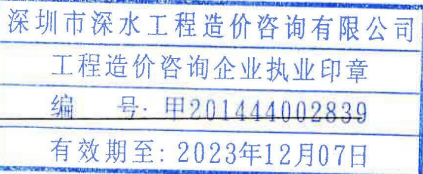 深圳市深水工程造价咨询有限公司
工程造价咨询企业执业印章
编 号: 甲201444002839
有效期至: 2023年12月07日